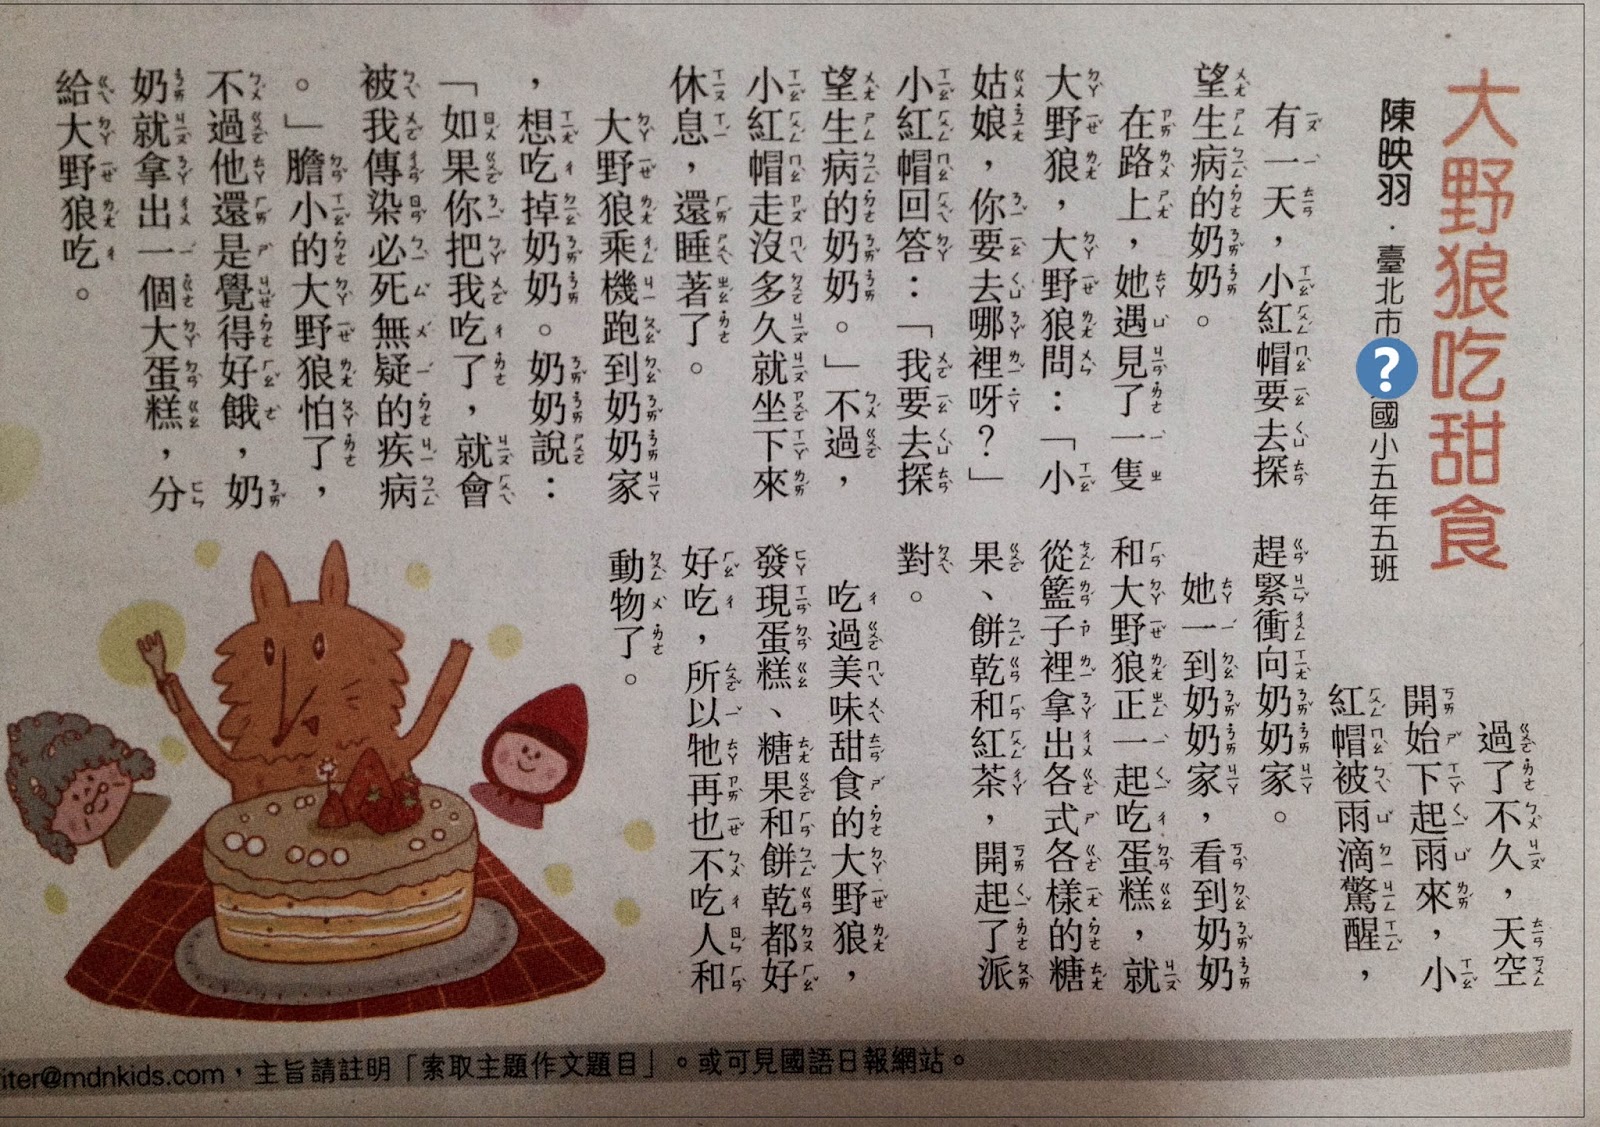 大野狼吃甜食
陳映羽．臺北市
國小五年五班
有一天，小紅帽要去探
望生病的奶奶。
在路上，她遇見了一隻
大野狼，大野狼問：「小
姑娘，你要去哪裡呀？」
小紅帽回答：「我要去探
望生病的奶奶。」不過，
小紅帽走沒多久就坐下來
休息，還睡著了。
大野狼乘機跑到奶奶家
，想吃掉奶奶。奶奶說：
「如果你把我吃了，就會
被我傳染必死無疑的疾病
。」膽小的大野狼怕了，
不過他還是覺得好餓，奶
奶就拿出一個大蛋糕，分
給大野狼吃。
過了不久，天空
開始下起雨來，小
紅帽被雨滴驚醒，
趕緊衝向奶奶家。
她一到奶奶家，看到奶奶
和大野狼正一起吃蛋糕，就
從籃子裡拿出各式各樣的糖
果、餅乾和紅茶，開起了派
對。
吃過美味甜食的大野狼，
發現蛋糕、糖果和餅乾都好
好吃，所以牠再也不吃人和
動物了。
iter@mdnkids.com，主旨請註明「索取主題作文題目」。或可見國語日報網站。